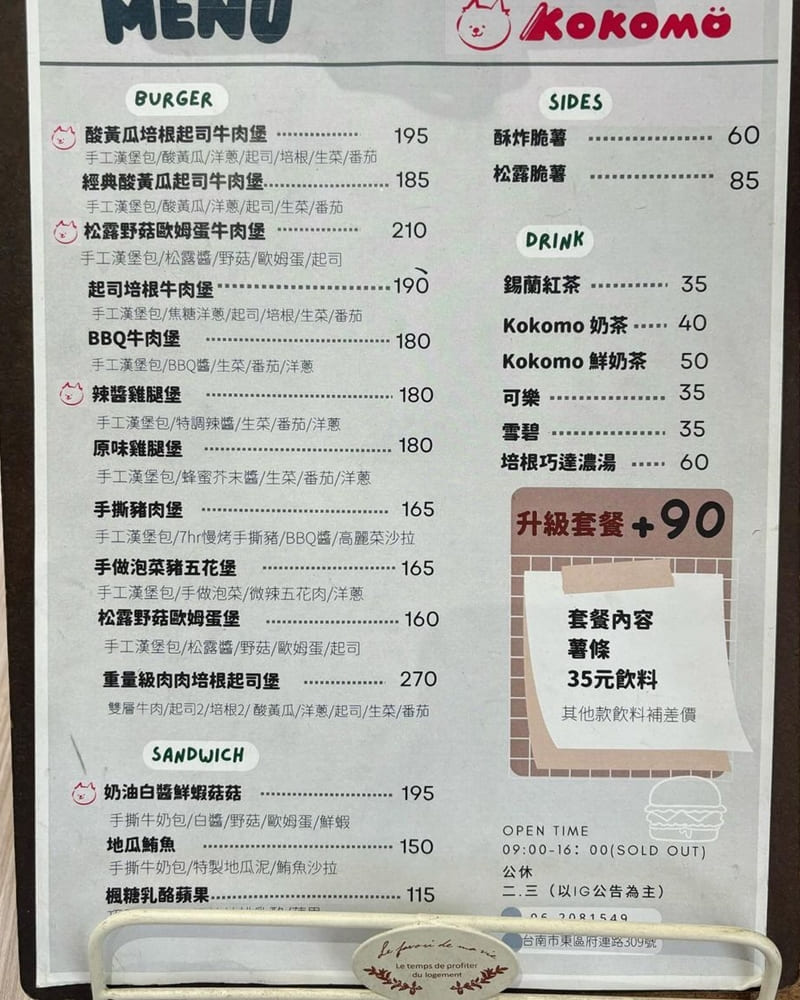 MENU
KOKOMO
BURGER
酸黃瓜培根起司牛肉堡 195
手工漢堡包/酸黃瓜/洋蔥/起司/培根/生菜/番茄
經典酸黃瓜起司牛肉堡 185
手工漢堡包/酸黃瓜/洋蔥/起司/生菜/番茄
松露野菇歐姆蛋牛肉堡 210
手工漢堡包/松露醬/野菇/歐姆蛋/起司
起司培根牛肉堡 190
手工漢堡包/焦糖洋蔥/起司/培根/生菜/番茄
BBQ牛肉堡 180
手工漢堡包/BBQ醬/生菜/番茄/洋蔥
辣醬雞腿堡 180
手工漢堡包/特調辣醬/生菜/番茄/洋蔥
原味雞腿堡 180
手工漢堡包/蜂蜜芥末醬/生菜/番茄/洋蔥
手撕豬肉堡 165
手工漢堡包/7hr慢烤手撕豬/BBQ醬/高麗菜沙拉
手做泡菜豬五花堡 165
手工漢堡包/手做泡菜/微辣五花肉/洋蔥
松露野菇歐姆蛋堡 160
手工漢堡包/松露醬/野菇/歐姆蛋/起司
重量級肉肉培根起司堡 270
雙層牛肉/起司2/培根2/酸黃瓜/洋蔥/起司/生菜/番茄
SANDWICH
奶油白醬鮮蝦菇菇 195
手撕牛奶包/白醬/野菇/歐姆蛋/鮮蝦
地瓜鮪魚 150
手撕牛奶包/特製地瓜泥/鮪魚沙拉
楓糖乳酪蘋果 115
SIDES
酥炸脆薯 60
松露脆薯 85
DRINK
錫蘭紅茶 35
Kokomo 奶茶 40
Kokomo 鮮奶茶 50
可樂 35
雪碧 35
培根巧達濃湯 60
升級套餐 +90
套餐內容
薯條
35元飲料
其他款飲料補差價
OPEN TIME
09:00-16：00(SOLD OUT)
公休
二.三（以IG公告為主）
06 2081549
台南市東區府連路309號
Le favori de ma vie
Le temps de profiter
du logement